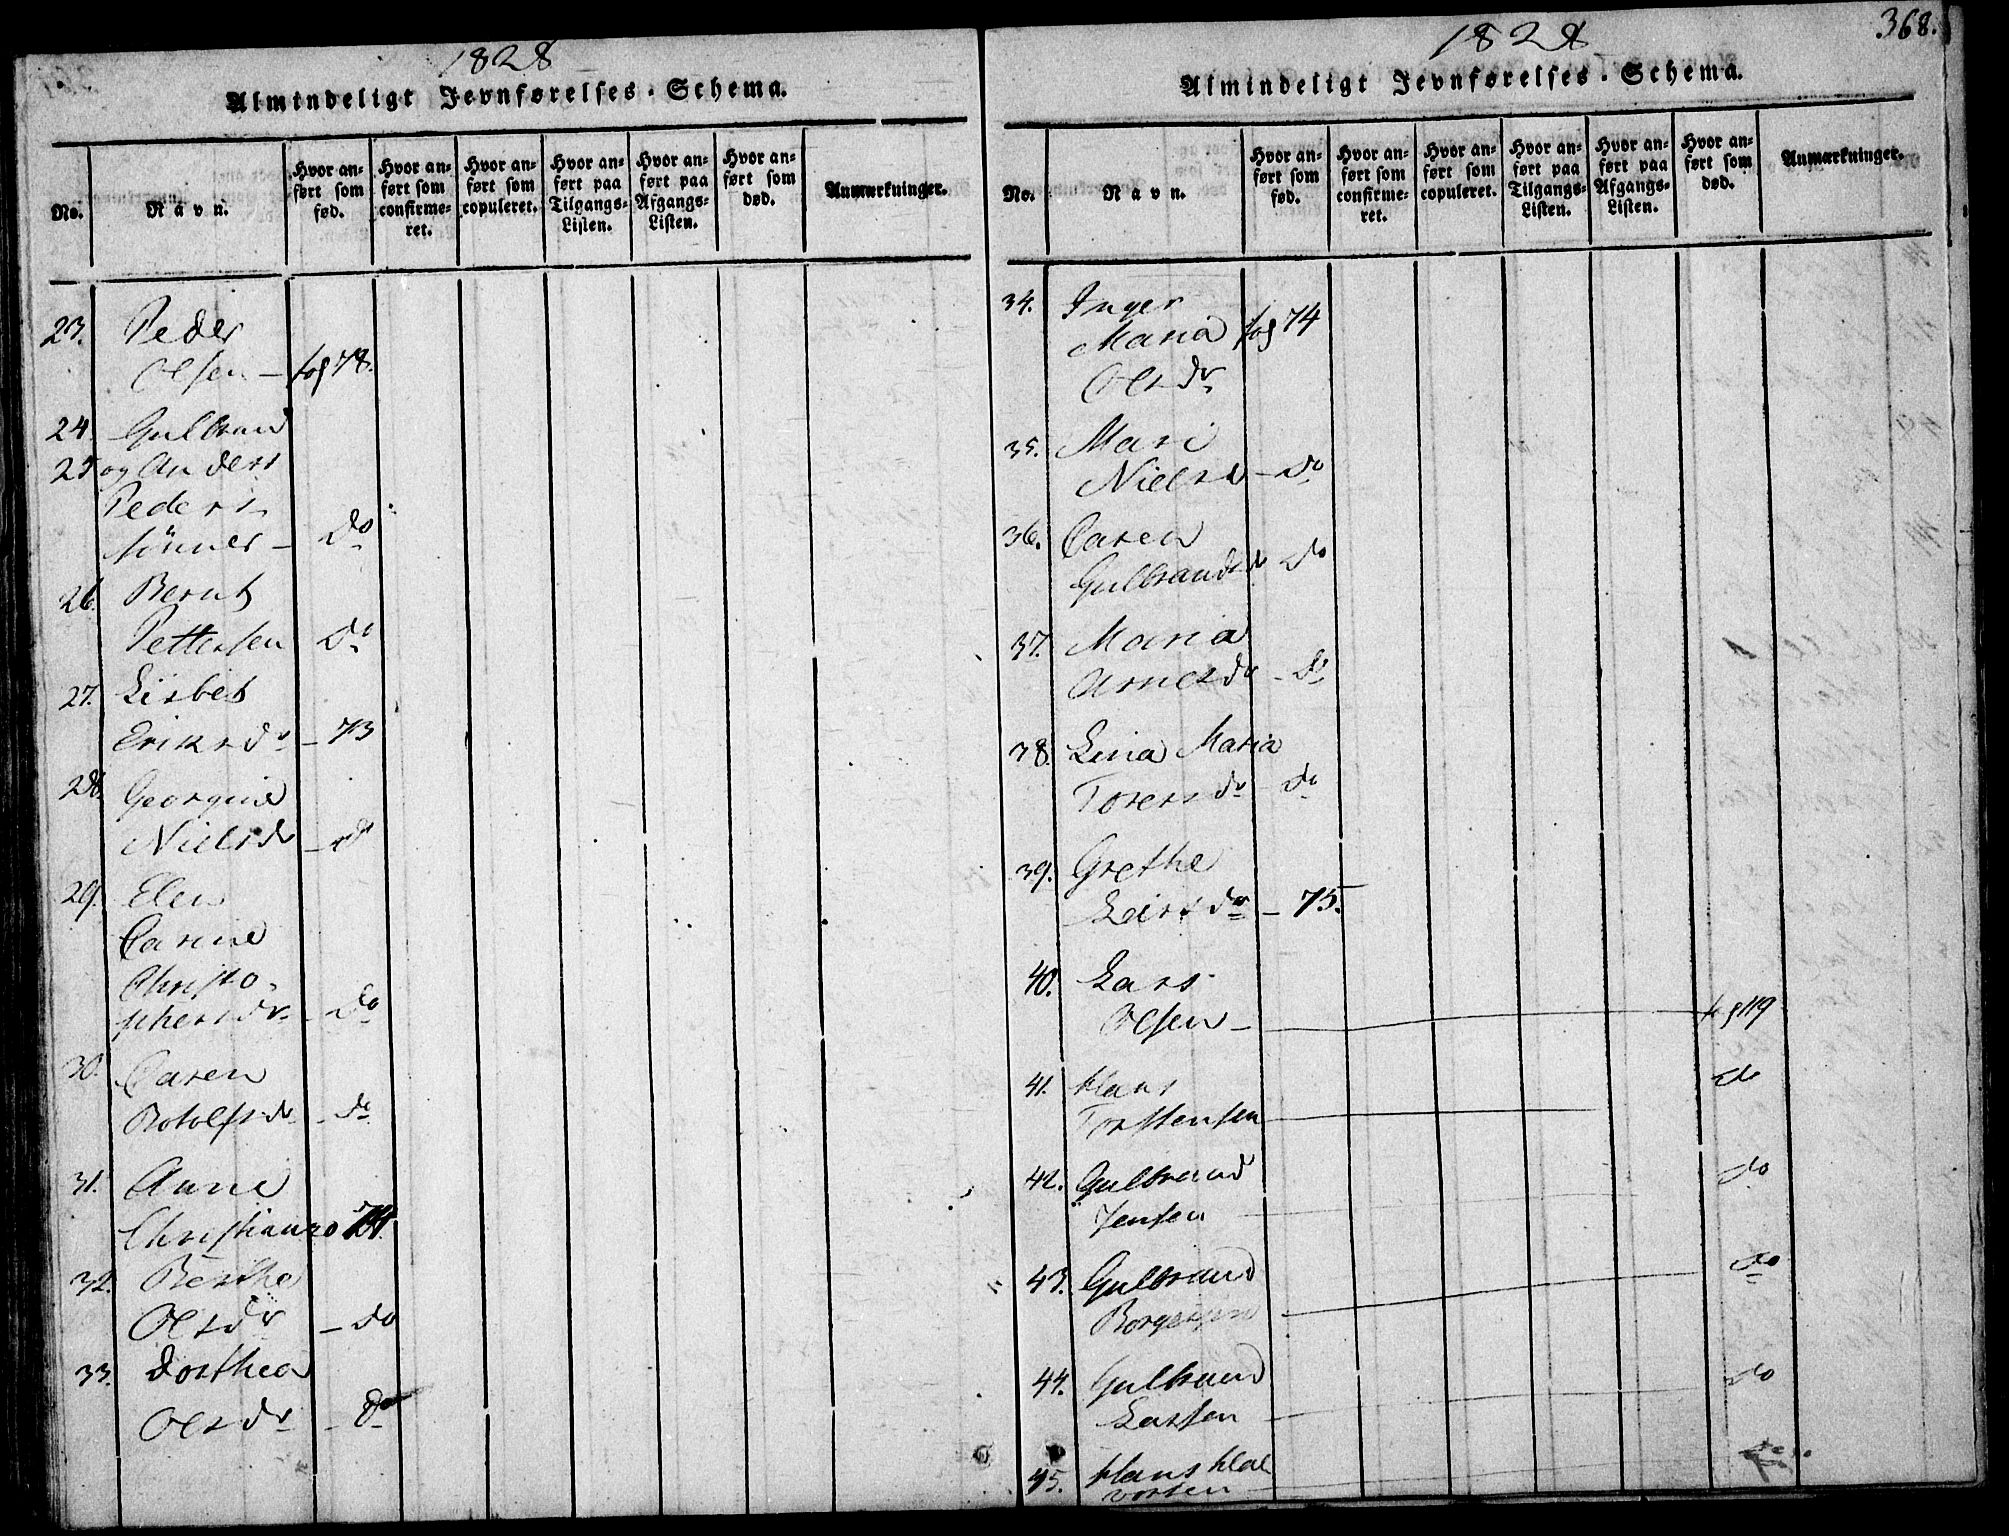 1828
Almindeligt Jevnførelses-Schema.
No.
Navn.
Hvor anført som fød.
Hvor anført som confirmeret.
Hvor anført som copuleret.
Hvor anført paa Tilgangs-Listen.
Hvor anført paa Afgangs-Listen.
Hvor anført som død.
Anmærkninger.
23. Peder
Olsen - fol 78.
24. Gulbrand
25 og Anders
Peders
sönner - do
26. Bernt
Pettersen do
27. Lisbet
Eriksdr - 73
28. Georgine
Nielsdr - do
29. Elen
Carine
Christo-
phersdr - do
30. Caren
Rotolfsdr - do
31. Anne
Christians 74.
32. Berthe
Olsdr - do
33. Dorthea
Olsdr - do
1828
368.
Almindeligt Jevnførelses-Schema.
No.
Navn.
Hvor anført som fød.
Hvor anført som confirmeret.
Hvor anført som copuleret.
Hvor anført paa Tilgangs-Listen.
Hvor anført paa Afgangs-Listen.
Hvor anført som død.
Anmærkninger.
34. Inger
Maria fol 74
Olsdr
35. Mari
Nielsd - do
36. Caren
Gulbrandsd do
37. Maria
Arnesdr - do
38. Lina Maria
Toresdr - do
39. Grethe
Larsdr - 75.
40. Lars
Olsen - fol 119
41. Hans do
Torstensen
42. Gulbrand do
Jensen
43. Gulbrand do
Borgersen
44. Gulbrand do
Larsen
45. Hans Hal
vorsen